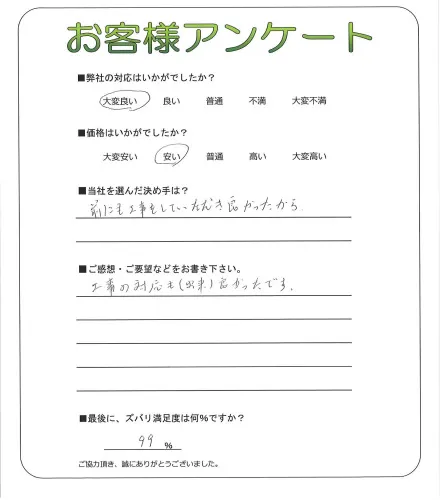 お客様アンケート
■弊社の対応はいかがでしたか?
大変良い 良い 普通 不満 大変不満
■価格はいかがでしたか?
大変安い 安い 普通 高い 大変高い
■当社を選んだ決め手は?
前にも工事をしていただき良かったから.
■ご感想・ご要望などをお書き下さい。
工事の対応も(出来)良かったです.
■最後に、ズバリ満足度は何%ですか?
99 %
ご協力頂き、誠にありがとうございました。